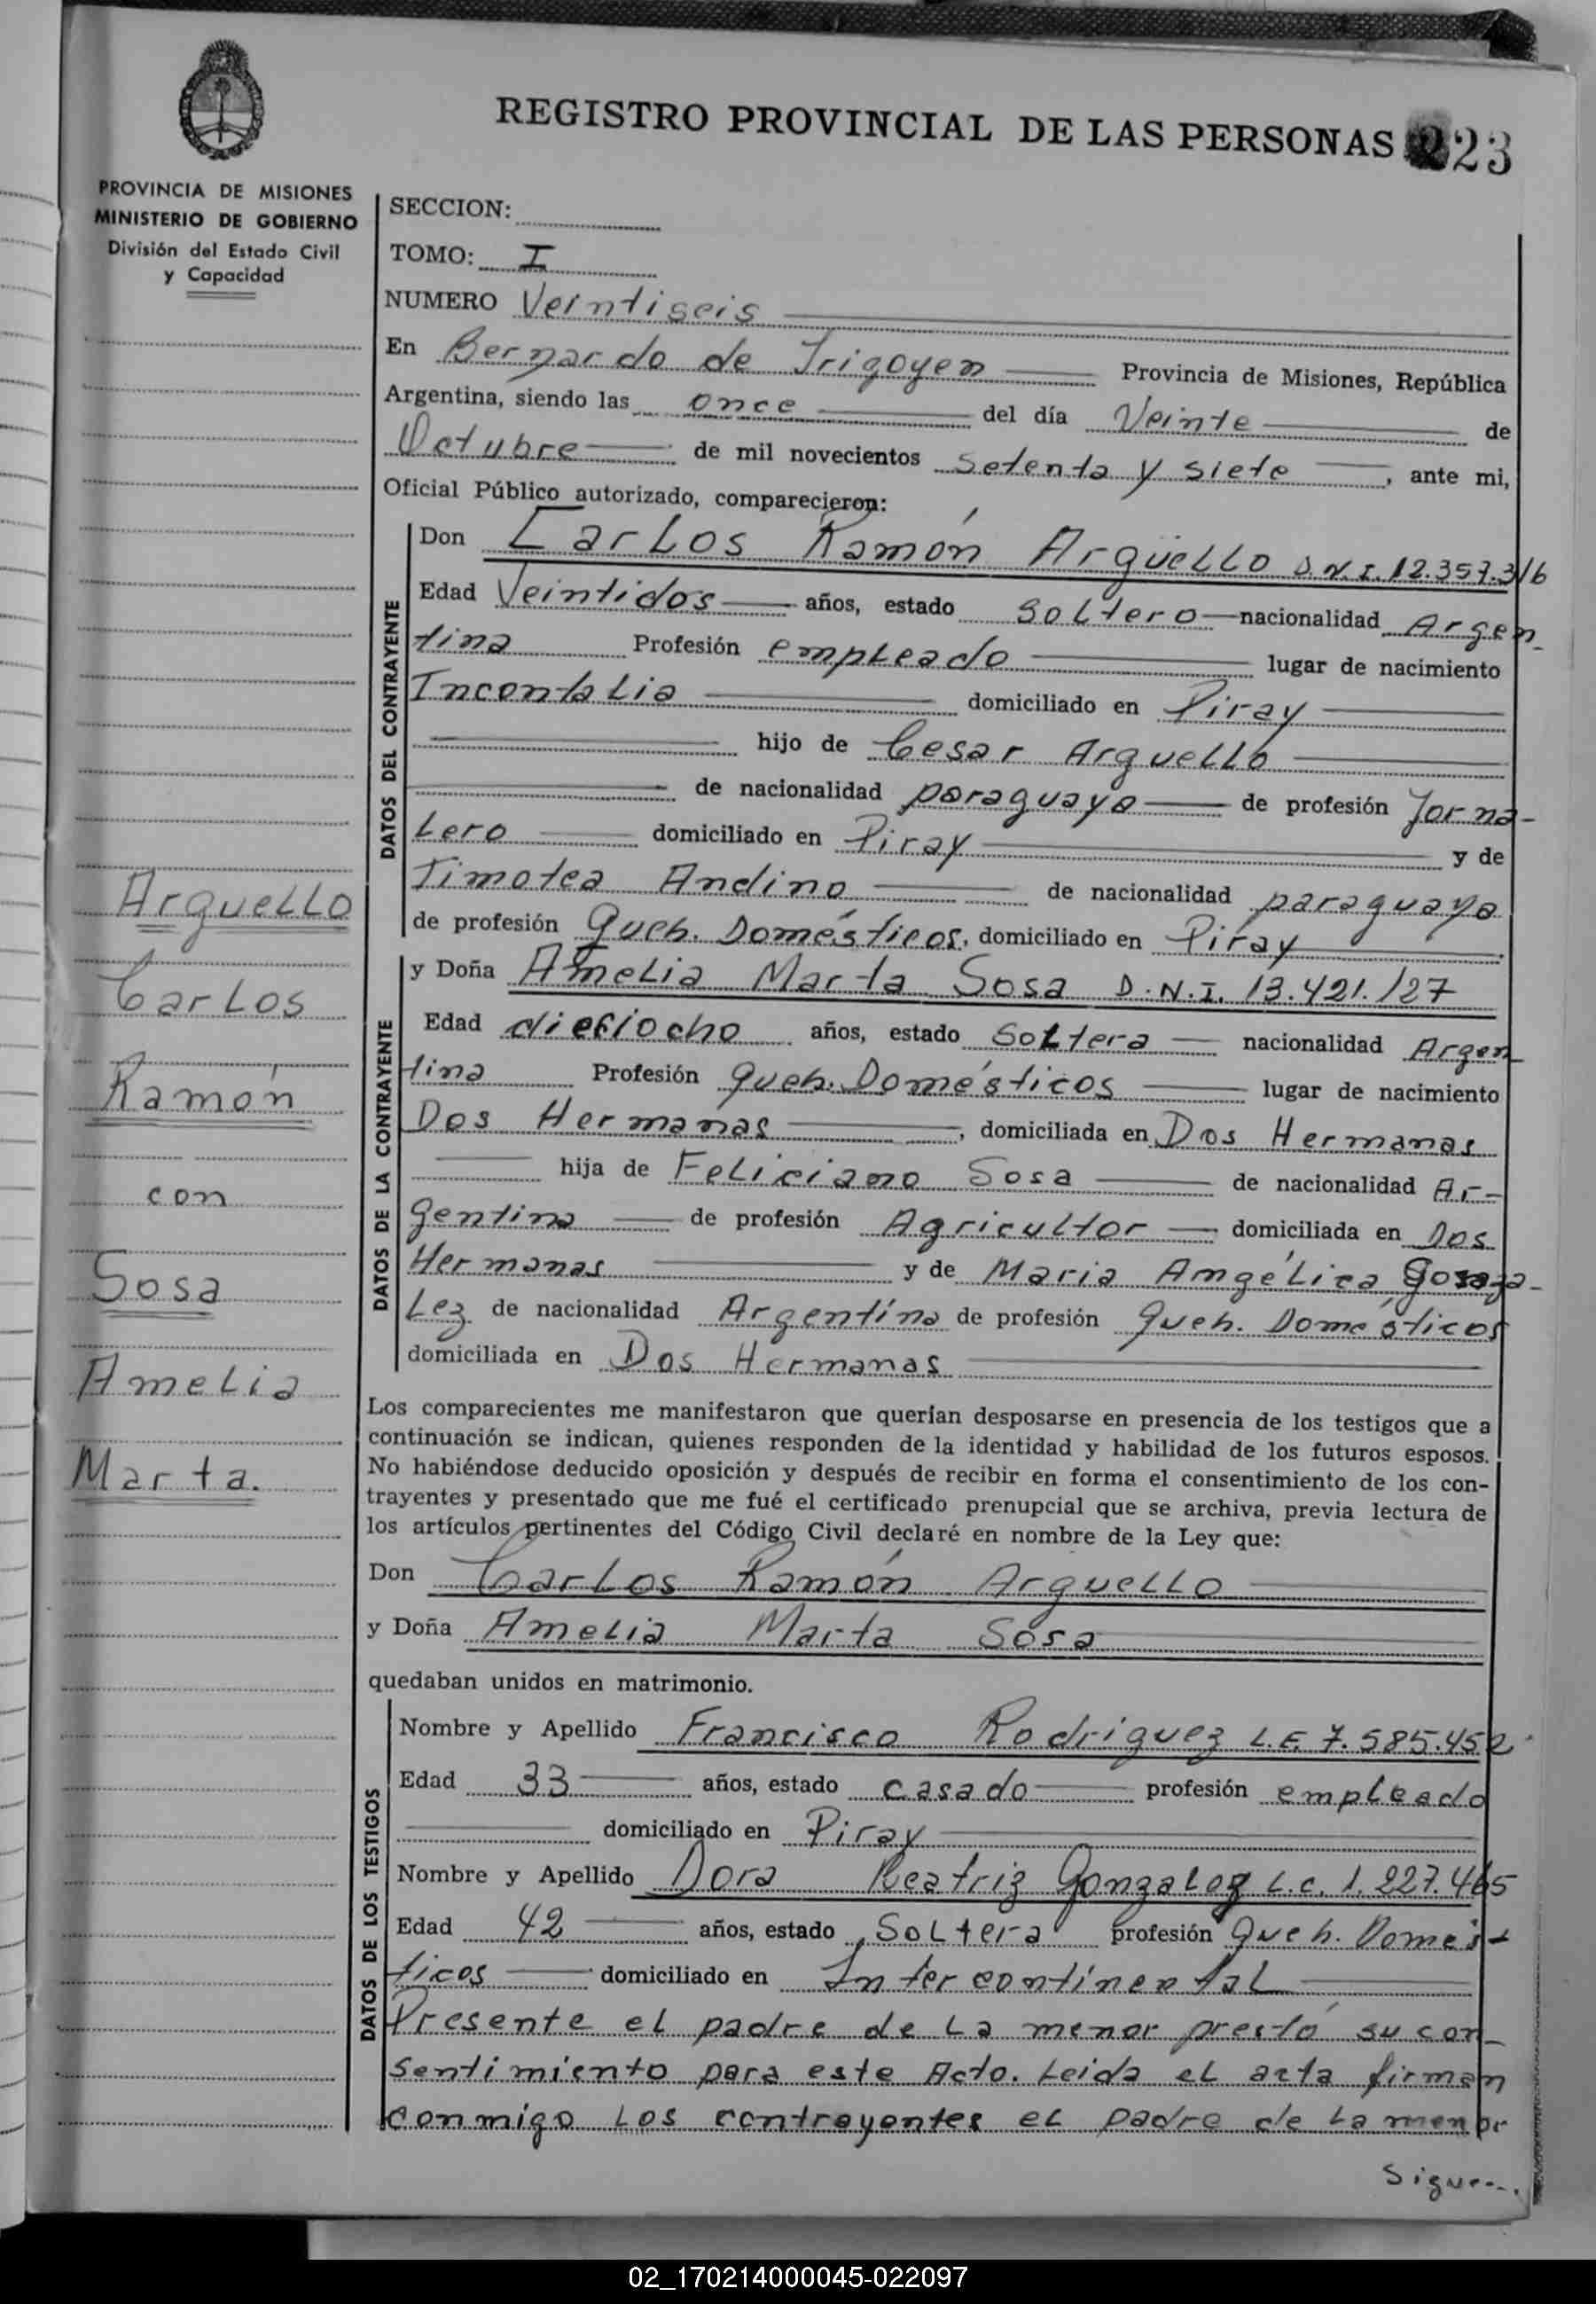 REGISTRO PROVINCIAL DE LAS PERSONAS 223
PROVINCIA DE MISIONES
MINISTERIO DE GOBIERNO
División del Estado Civil
y Capacidad
SECCION:
TOMO: I
NUMERO Veintiseis
En Bernardo de Irigoyen Provincia de Misiones, República
Argentina, siendo las once del día Veinte de
Octubre de mil novecientos setenta y siete, ante mi,
Oficial Público autorizado, comparecieron:
DATOS DEL CONTRAYENTE
Don Carlos Ramón Argüello D.N.I. 12.357.316
Edad Veintidos años, estado soltero nacionalidad Argen
tina Profesión empleado lugar de nacimiento
domiciliado en Piray
hijo de Cesar Arguello
de nacionalidad paraguayo de profesión Jorna-
lero domiciliado en Piray y de
Timotea Andino de nacionalidad paraguaya
de profesión Queh. Domésticos, domiciliado en Piray
DATOS DE LA CONTRAYENTE
y Doña Amelia Marta Sosa D.N.I. 13.421.127
Edad dieciocho años, estado Soltera nacionalidad Argen
tina Profesión Queh. Domésticos lugar de nacimiento
Dos Hermanas, domiciliada en Dos Hermanas
hija de Feliciano Sosa de nacionalidad Ar-
gentino de profesión Agricultor domiciliada en Dos
Hermanas y de Maria Angélica Gonza-
lez de nacionalidad Argentína de profesión Queh. Domésticos
domiciliada en Dos Hermanas
Arguello
Carlos
Ramón
con
Sosa
Amelia
Marta.
Los comparecientes me manifestaron que querían desposarse en presencia de los testigos que a
continuación se indican, quienes responden de la identidad y habilidad de los futuros esposos.
No habiéndose deducido oposición y después de recibir en forma el consentimiento de los con-
trayentes y presentado que me fué el certificado prenupcial que se archiva, previa lectura de
los artículos pertinentes del Código Civil declaré en nombre de la Ley que:
Don Carlos Ramón Arguello
y Doña Amelia Marta Sosa
quedaban unidos en matrimonio.
DATOS DE LOS TESTIGOS
Nombre y Apellido Francisco Rodriguez L.E. 7.585.452
Edad 33 años, estado casado profesión empleado
domiciliado en Piray
Nombre y Apellido Dora Beatriz Gonzalez L.C. 1.227.465
Edad 42 años, estado Soltera profesión Queh. Domés-
ticos domiciliado en Intercontinental
Presente el padre de la menor prestó su con-
sentimiento para este Acto. Leida el acta firman
conmigo los contrayentes el padre de la menor
Sigue...
02_170214000045-022097